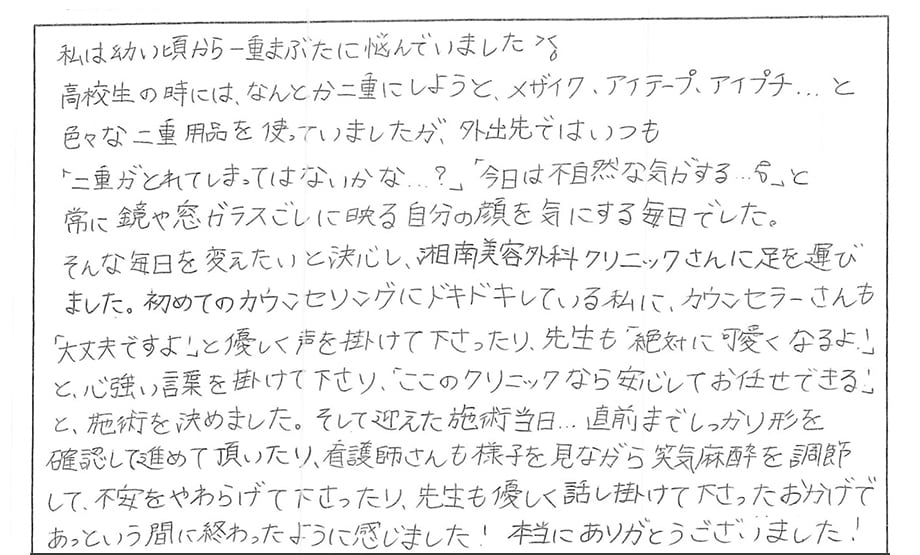 私は幼い頃から一重まぶたに悩んでいました
高校生の時には、なんとか二重にしようと、メザイク、アイテープ、アイプチ...と
色々な二重用品を使っていましたが、外出先ではいつも
「二重がとれてしまってはないかな...?」「今日は不自然な気がする...」と
常に鏡や窓ガラスごしに映る自分の顔を気にする毎日でした。
そんな毎日を変えたいと決心し、湘南美容外科クリニックさんに足を運び
ました。初めてのカウンセリングにドキドキしている私に、カウンセラーさんも
「大丈夫ですよ!」と優しく声を掛けて下さったり、先生も「絶対に可愛くなるよ!」
と、心強い言葉を掛けて下さり、「ここのクリニックなら安心してお任せできる!」
と、施術を決めました。そして迎えた施術当日...直前までしっかり形を
確認して進めて頂いたり、看護師さんも様子を見ながら笑気麻酔を調節
して、不安をやわらげて下さったり、先生も優しく話し掛けて下さったおかげで
あっという間に終わったように感じました! 本当にありがとうございました!